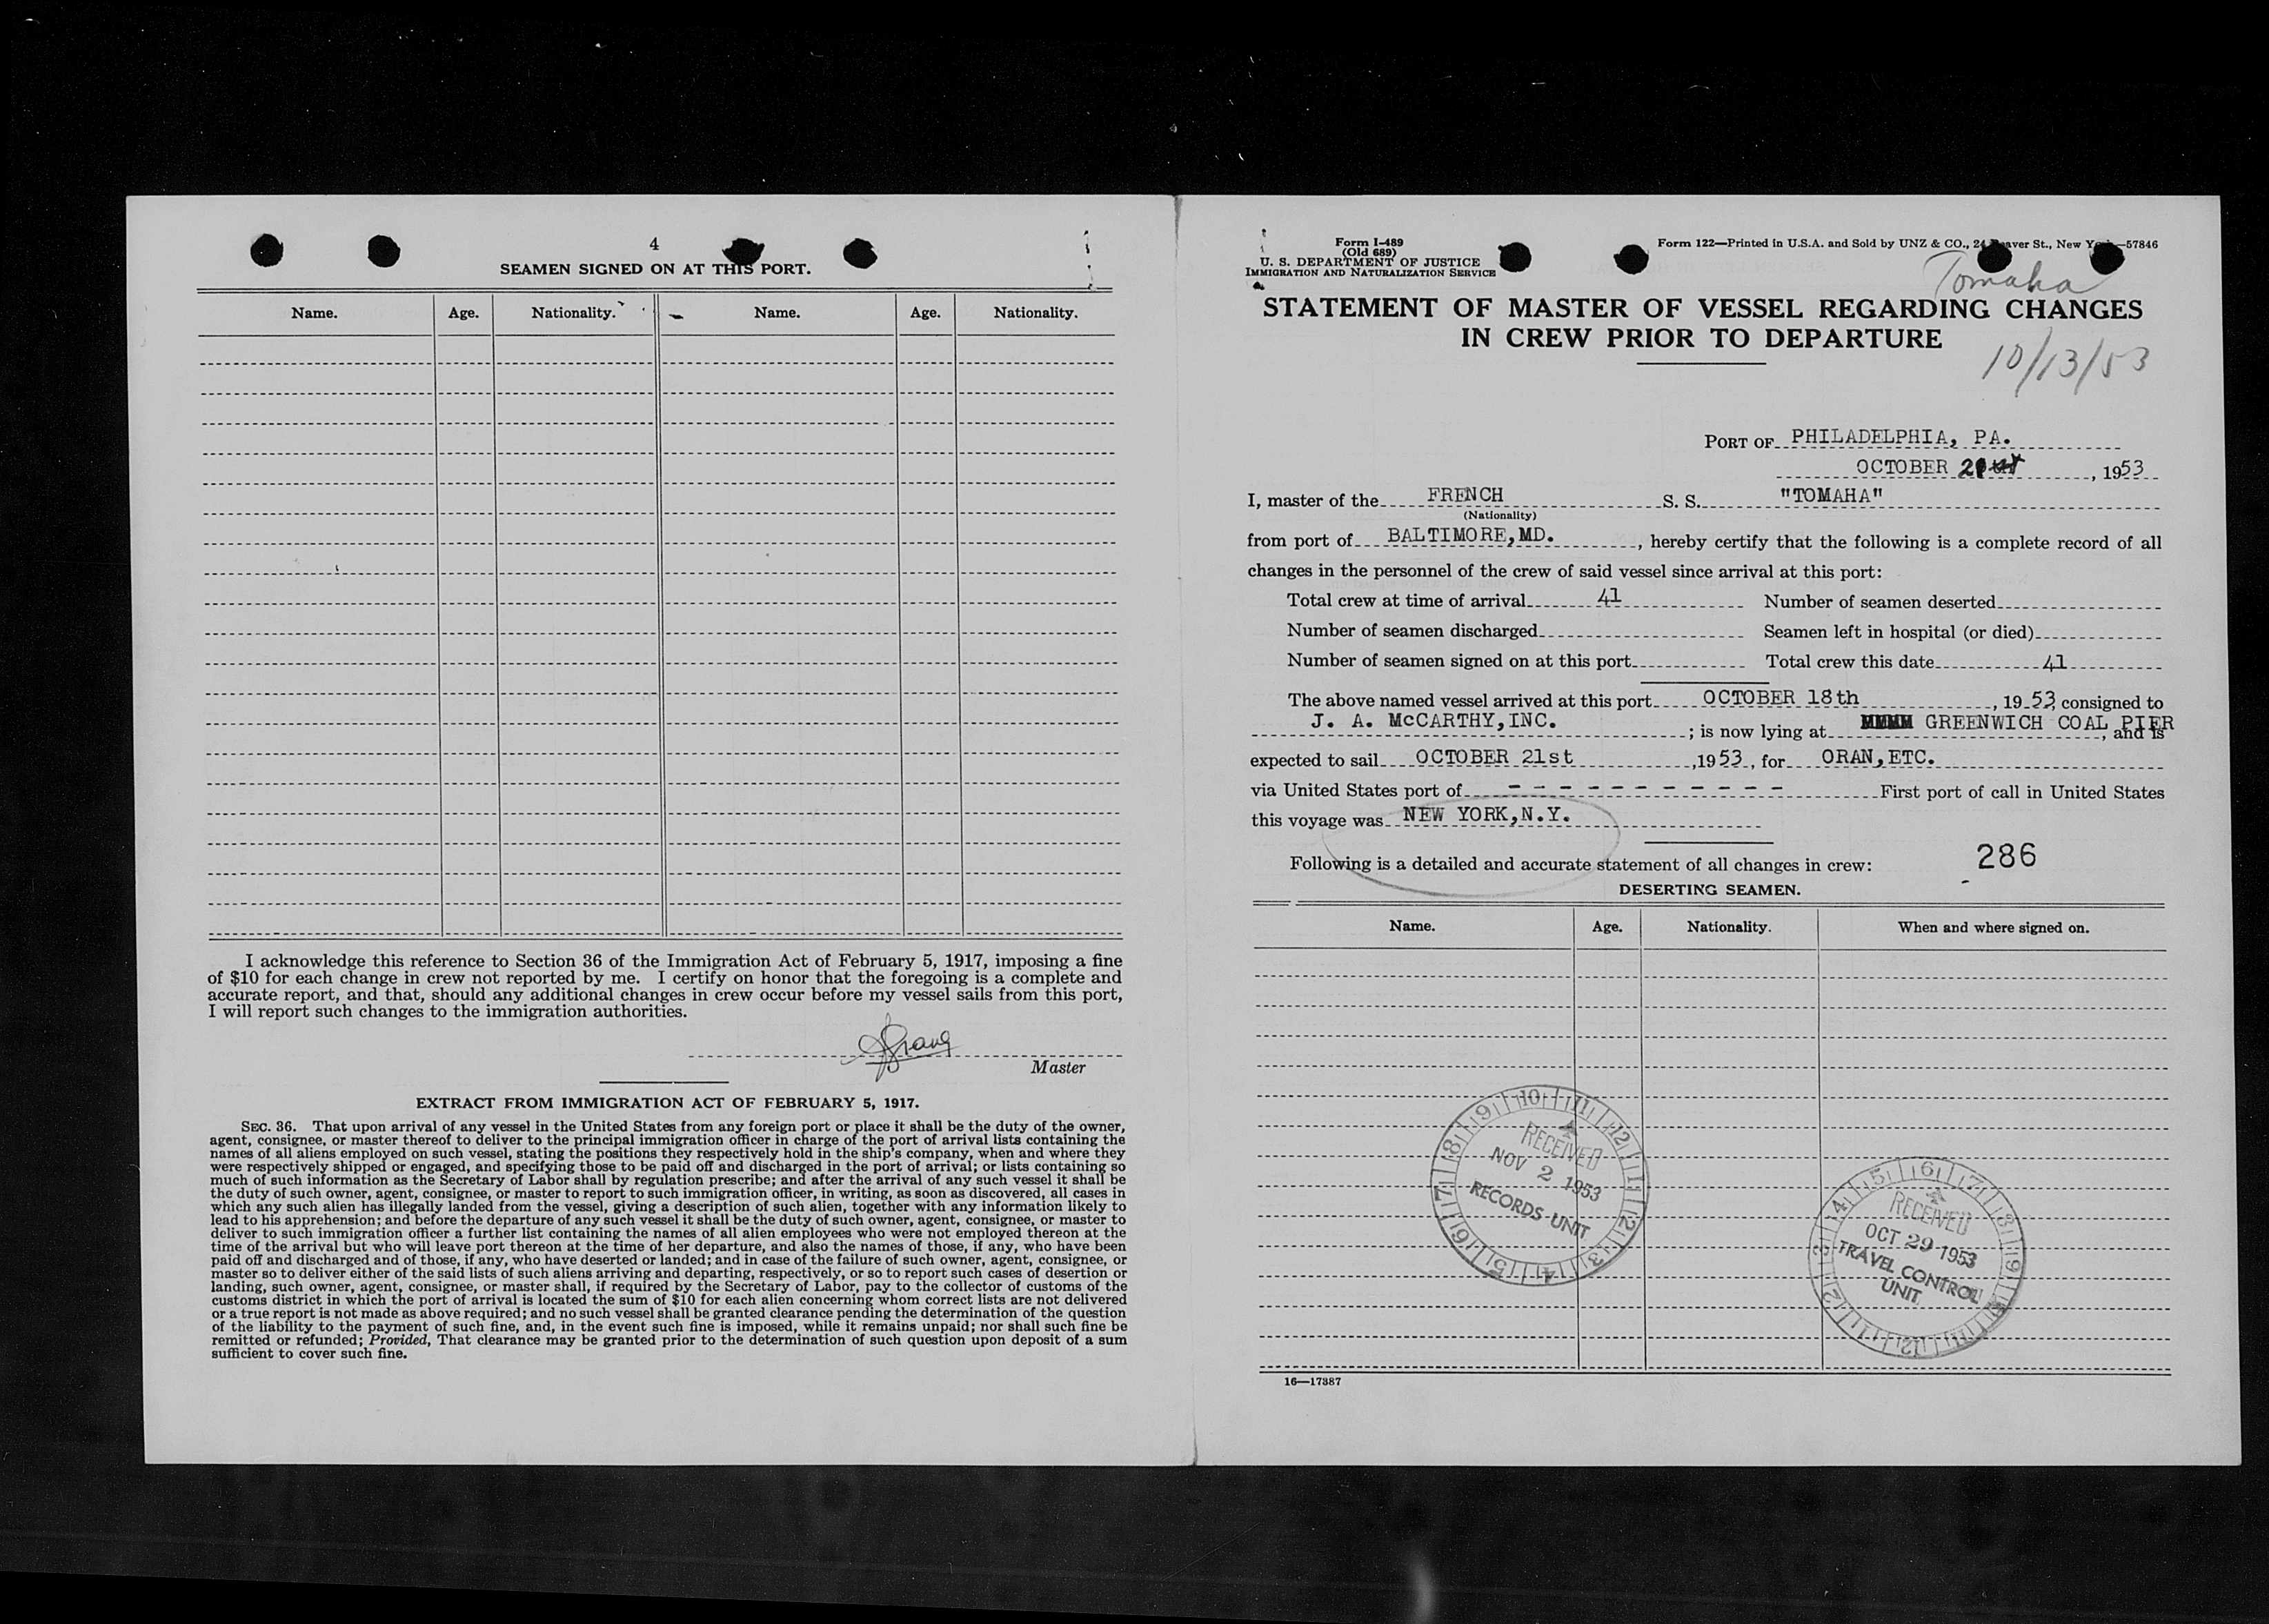 4
SEAMEN SIGNED ON AT THIS PORT.
Name. Age. Nationality. Name. Age. Nationality.
I acknowledge this reference to Section 36 of the Immigration Act of February 5, 1917, imposing a fine
of $10 for each change in crew not reported by me. I certify on honor that the foregoing is a complete and
accurate report, and that, should any additional changes in crew occur before my vessel sails from this port,
I will report such changes to the immigration authorities.
Master
EXTRACT FROM IMMIGRATION ACT OF FEBRUARY 5, 1917.
SEC. 36. That upon arrival of any vessel in the United States from any foreign port or place it shall be the duty of the owner,
agent, consignee, or master thereof to deliver to the principal immigration officer in charge of the port of arrival lists containing the
names of all aliens employed on such vessel, stating the positions they respectively hold in the ship's company, when and where they
were respectively shipped or engaged, and specifying those to be paid off and discharged in the port of arrival; or lists containing so
much of such information as the Secretary of Labor shall by regulation prescribe; and after the arrival of any such vessel it shall be
the duty of such owner, agent, consignee, or master to report to such immigration officer, in writing, as soon as discovered, all cases in
which any such alien has illegally landed from the vessel, giving a description of such alien, together with any information likely to
lead to his apprehension; and before the departure of any such vessel it shall be the duty of such owner, agent, consignee, or master to
deliver to such immigration officer a further list containing the names of all alien employees who were not employed thereon at the
time of the arrival but who will leave port thereon at the time of her departure, and also the names of those, if any, who have been
paid off and discharged and of those, if any, who have deserted or landed; and in case of the failure of such owner, agent, consignee, or
master so to deliver either of the said lists of such aliens arriving and departing, respectively, or so to report such cases of desertion or
landing, such owner, agent, consignee, or master shall, if required by the Secretary of Labor, pay to the collector of customs of the
customs district in which the port of arrival is located the sum of $10 for each alien concerning whom correct lists are not delivered
or a true report is not made as above required; and no such vessel shall be granted clearance pending the determination of the question
of the liability to the payment of such fine, and, in the event such fine is imposed, while it remains unpaid; nor shall such fine be
remitted or refunded; Provided, That clearance may be granted prior to the determination of such question upon deposit of a sum
sufficient to cover such fine.
Form I-489
(Old 689)
U. S. DEPARTMENT OF JUSTICE
IMMIGRATION AND NATURALIZATION SERVICE
Form 122—Printed in U.S.A. and Sold by UNZ & CO., St., New —57846
Tomaha
STATEMENT OF MASTER OF VESSEL REGARDING CHANGES
IN CREW PRIOR TO DEPARTURE
10/13/53
PORT OF PHILADELPHIA, PA.
OCTOBER , 1953
I, master of the FRENCH S. S. "TOMAHA"
(Nationality)
from port of BALTIMORE,MD. , hereby certify that the following is a complete record of all
changes in the personnel of the crew of said vessel since arrival at this port:
Total crew at time of arrival 41 Number of seamen deserted
Number of seamen discharged Seamen left in hospital (or died)
Number of seamen signed on at this port Total crew this date 41
The above named vessel arrived at this port OCTOBER 18th , 1953, consigned to
J. A. McCARTHY,INC. ; is now lying at GREENWICH COAL PIER, and is
expected to sail OCTOBER 21st ,1953, for ORAN,ETC.
via United States port of - - - - - - - - - - - First port of call in United States
this voyage was NEW YORK,N.Y.
Following is a detailed and accurate statement of all changes in crew: 286
DESERTING SEAMEN.
Name. Age. Nationality. When and where signed on.
RECEIVED
NOV 2 1953
RECORDS UNIT
RECEIVED
OCT 29 1953
TRAVEL CONTROL
UNIT
16—17387